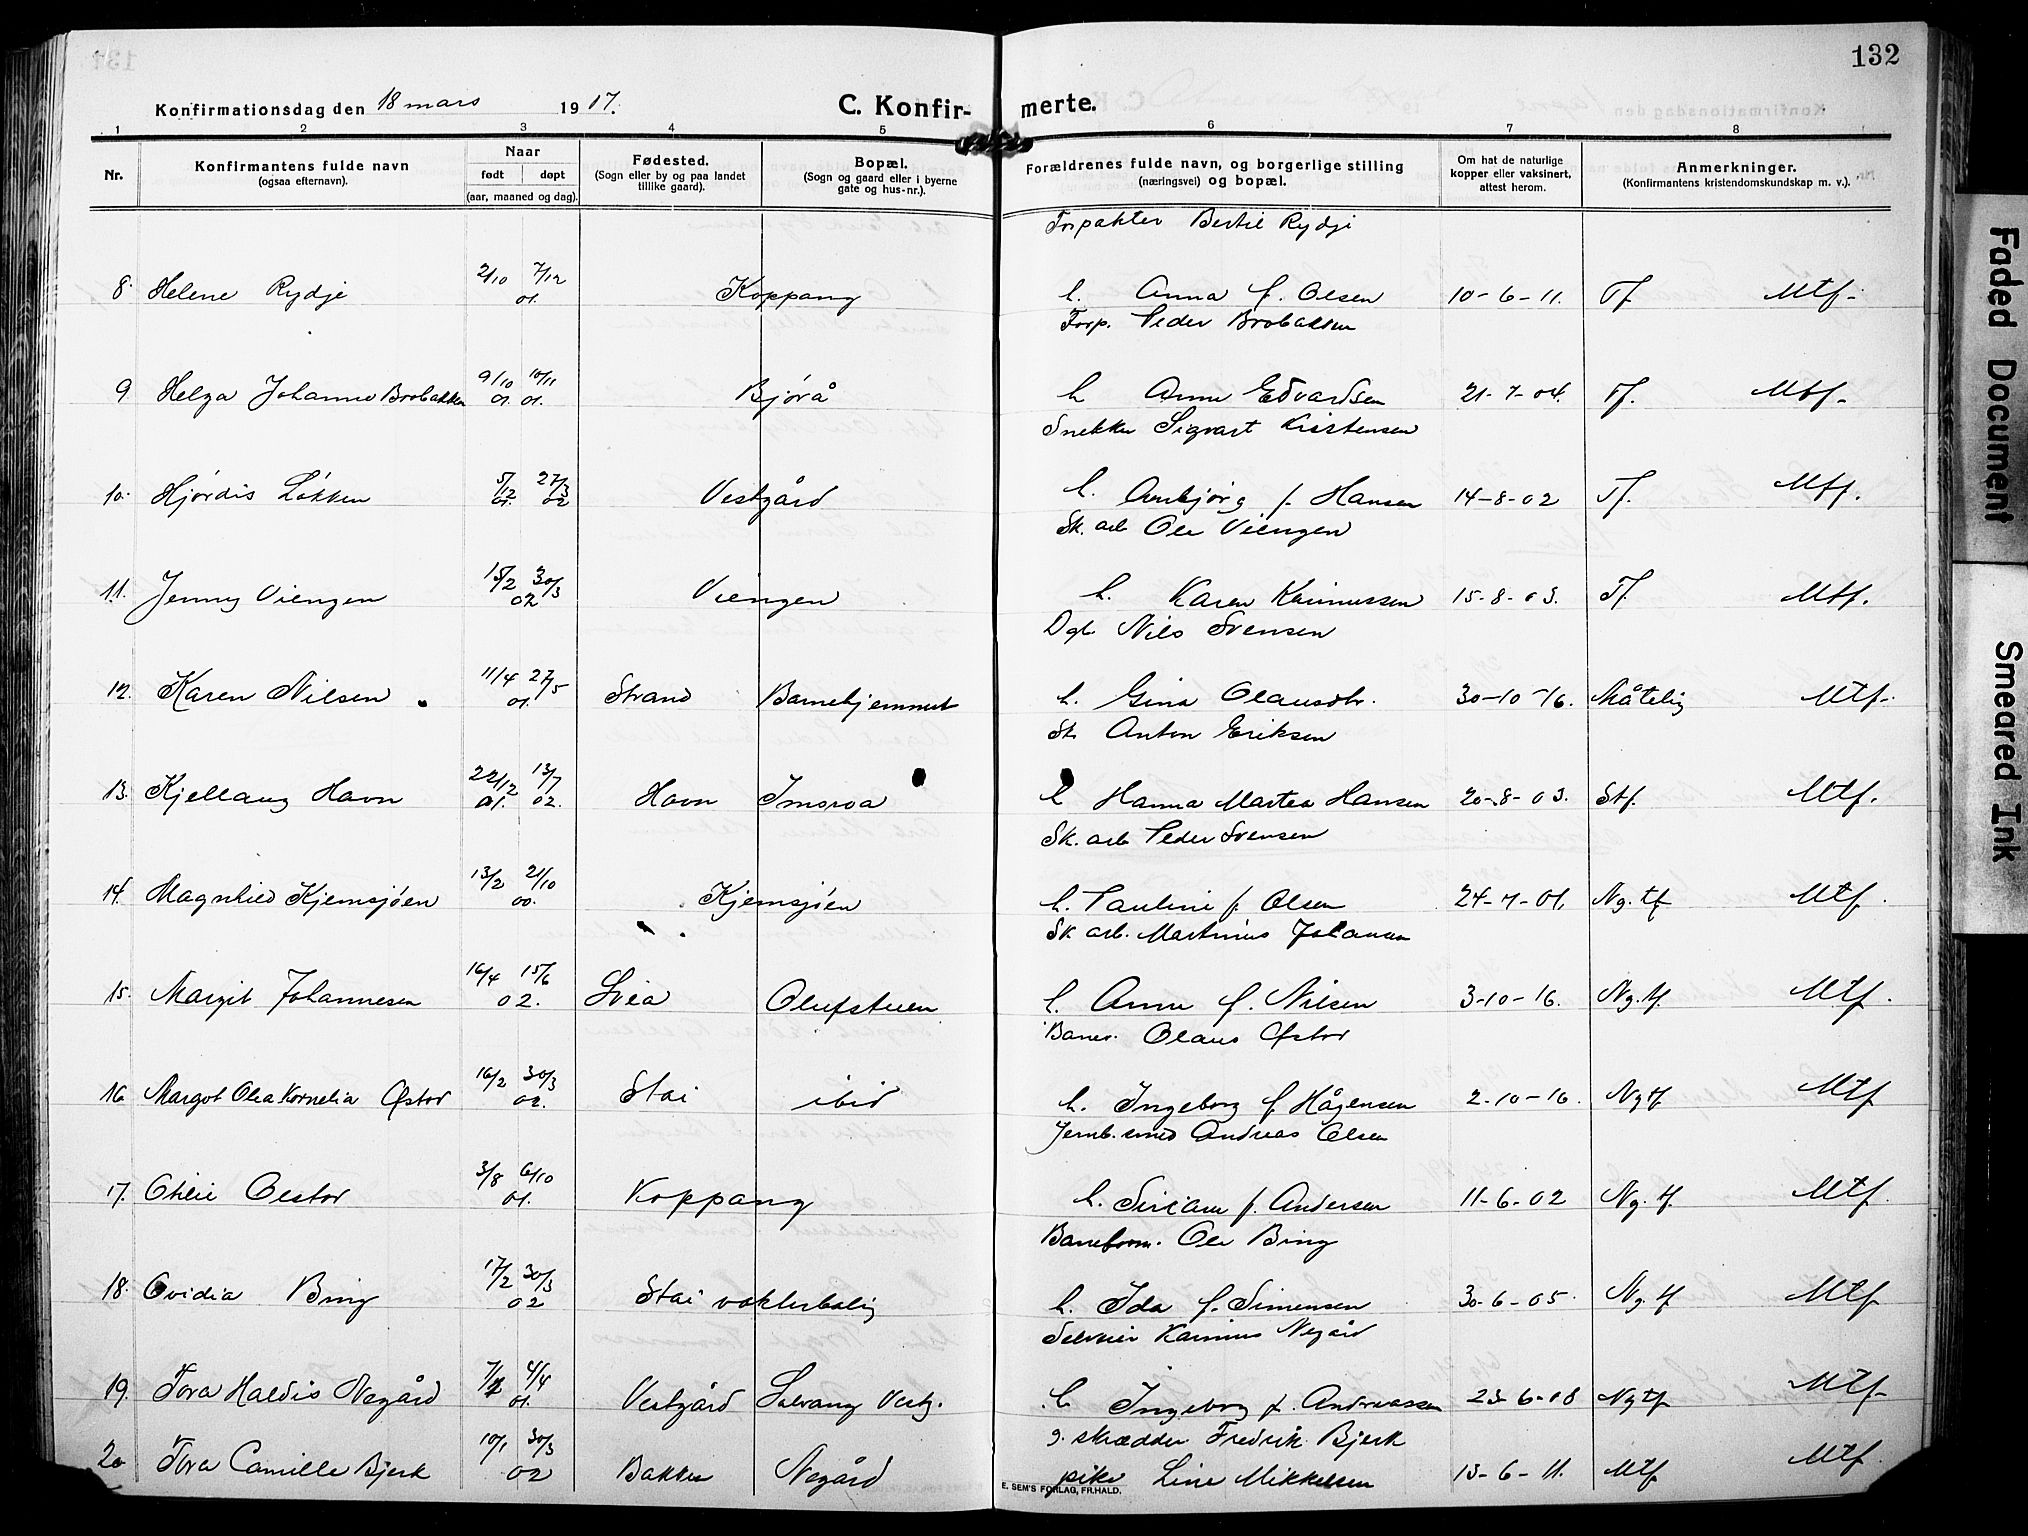 132
Konfirmationsdag den 18 mars 1917. C. Konfirmerte.
1 2 3 4 5 6 7 8
Nr. Konfirmantens fulde navn (ogsaa efternavn). Naar født døpt (aar, maaned og dag). Fødested. (Sogn eller by og paa landet tillike gaard). Bopæl. (Sogn og gaard eller i byerne gate og hus-nr.). Forældrenes fulde navn, og borgerlige stilling (næringsvei) og bopæl. Om hat de naturlige kopper eller vaksinert, attest herom. Anmerkninger. (Konfirmantens kristendomskundskap m. v.).
Forpakter Bertil Rydje
8. Helene Rydje 2/10 7/12 01. Koppang h. Anna f. Olsen 10-6-11. Tf. Mtf.
Forp. Peder Brobakken
9 Helga Johanne Brobakken 9/10 01. 10/11 01. Bjørå h. Anne Edvardsen 21-7-04. Tf. Mtf.
Snekker Sigvart Kristensen
10. Hjørdis Løkken 5/12 01. 27/3 02 Vestgård h. Arnbjørg f. Hansen 14-8-02 Tf. Mtf.
Sk. arb Ole Viengen
11. Jenny Viengen 15/2 30/3 02 Viengen h. Karen Rasmussen 15-8-03. Tf. Mtf.
Dgb Nils Svensen
12. Karen Nilsen 11/4 27/5 01. Strand Barnehjemmet h. Gina Olausdtr. 30-10-16. Måtelig Mtf.
St. Anton Eriksen
13. Kjellaug Havn 22/12 01. 13/7 02. Havn Imsroa h Hanna Martea Hansen 20-8-03. Stf. Mtf.
Sk. arb Peder Svensen
14. Magnhild Kjemsjøen 13/2 21/10 00. Kjemsjøen h. Pauline f. Olsen 24-7-01. Ng. tf Mtf.
Sk arb. Martinius Johansen
15. Margit Johannesen 16/4 15/6 02. Svea Olufstuen h. Anne f. Nilsen 3-10-16. Ng. tf. Mtf.
Banev. Olaus Østor
16 Margot Olea Kornelia Østor 16/2 30/3 02. Stai ibid h. Ingeborg f Hågensen 2-10-16. Ng tf Mtf
Jernb. smed Andreas Olsen
17. Othilie Oestor 3/8 6/10 01. Koppang h. Siriann f. Andersen 11-6-02 Ng. tf. Mtf.
Baneform. Ole Bing
18. Ovidia Bing 17/2 30/3 02 Stai vokterbolig h. Ida f. Simensen 30-6-05. Ng. tf Mtf
Selveier Karinius Negård
19. Tora Haldis Negård 7/2 4/4 01. Vestgård Solvang Vestg. h Ingeborg f. Andreassen 23-6-08 Ng tf Mtf
g. skrædder Fredrik Bjerk
20 Tora Camille Bjerk 10/1 30/3 02 Bakken Negård pike Line Mikkelsen 13-6-11. Mtf Mtf
E. SEM'S FORLAG, FR.HALD.
Faded Document
Smeared Ink